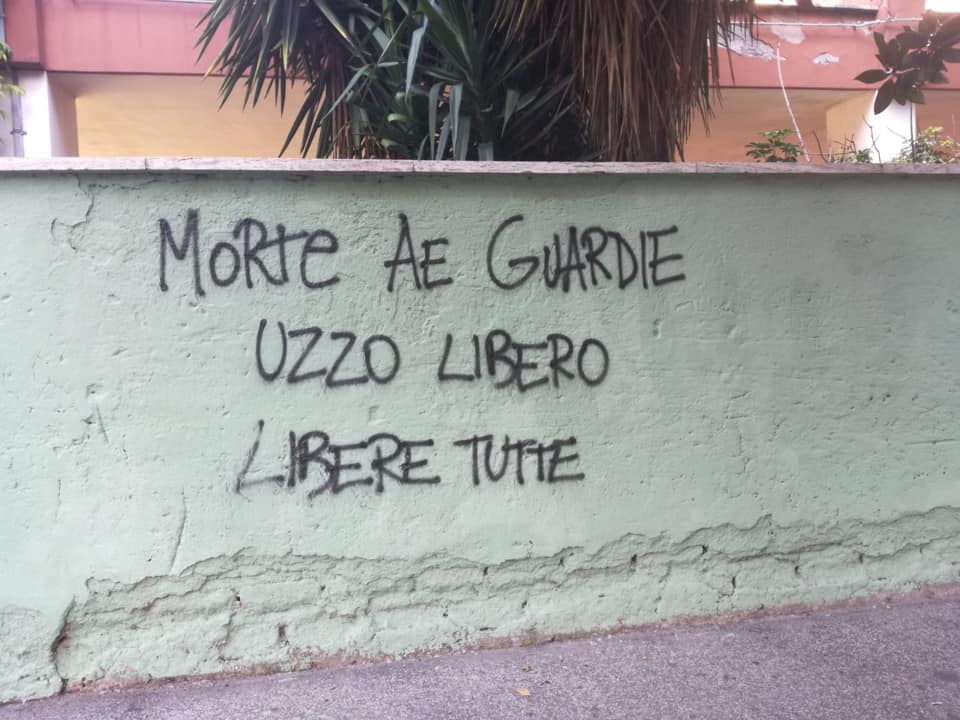 MORTE AE GUARDIE
UZZO LIBERO
LIBERE TUTTE